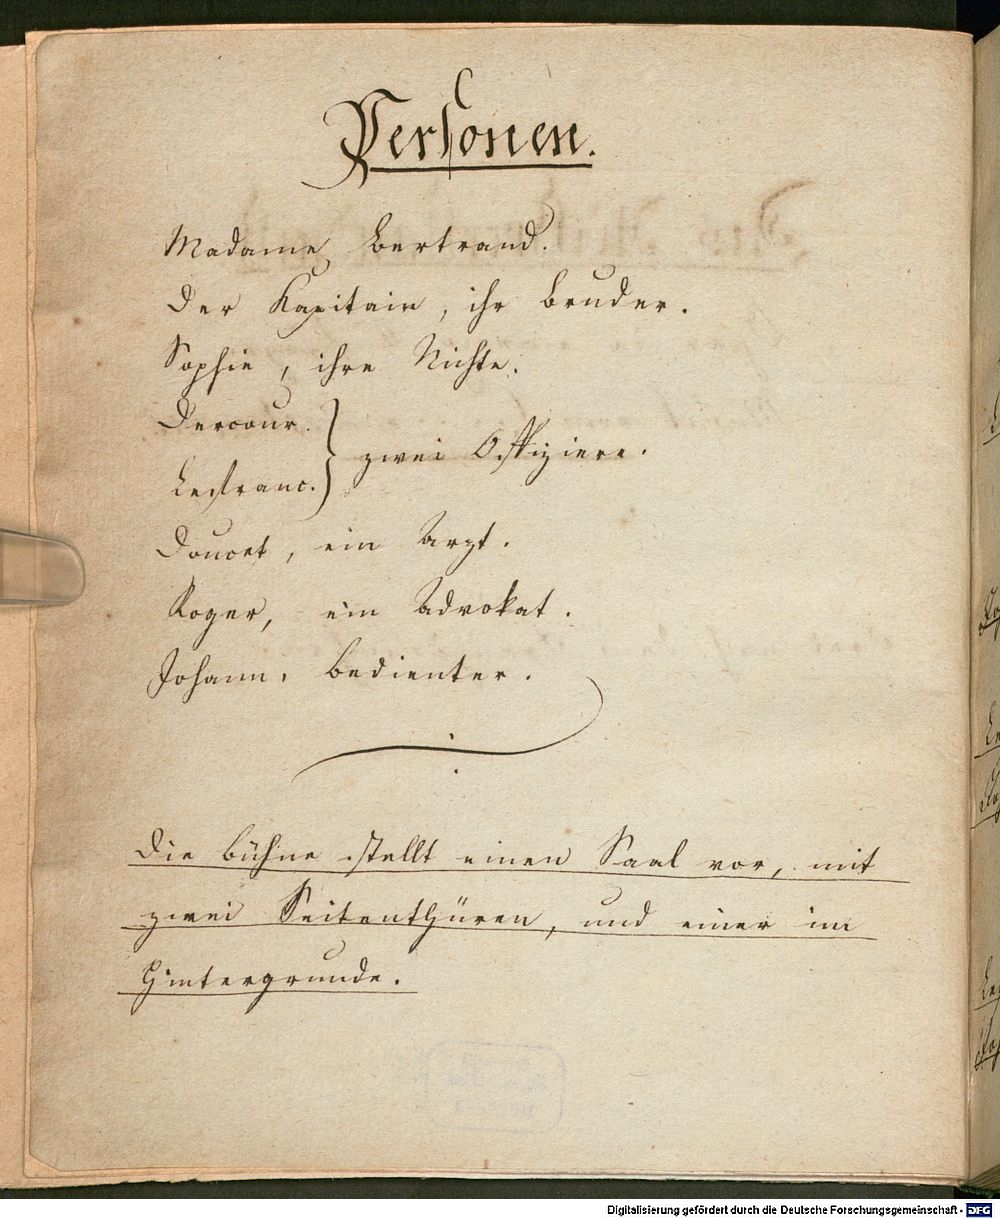 Personen.
Madame Bertrand.
Der Kapitain, ihr Bruder.
Sophie, ihre Nichte.
Dercour.
zwei Offiziere.
Lefranc.
Doucet, ein Arzt.
Roger, ein Advokat.
Johann, Bedienter.
Die Bühne stellt einen Saal vor, mit
zwei Seitenthüren, und einer im
Hintergrunde.
Digitalisierung gefördert durch die Deutsche Forschungsgemeinschaft - DFG